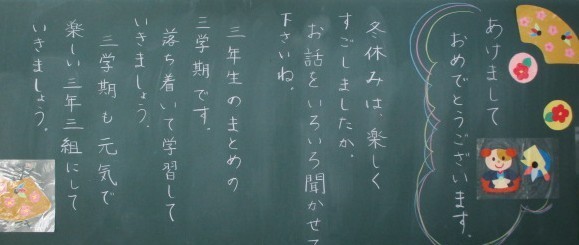 あけまして
おめでとうございます。
冬休みは、楽しく
すごしましたか。
お話をいろいろ聞かせて
下さいね。
三年生のまとめの
三学期です。
落ち着いて学習して
いきましょう。
三学期も元気で
楽しい三年三組にして
いきましょう。